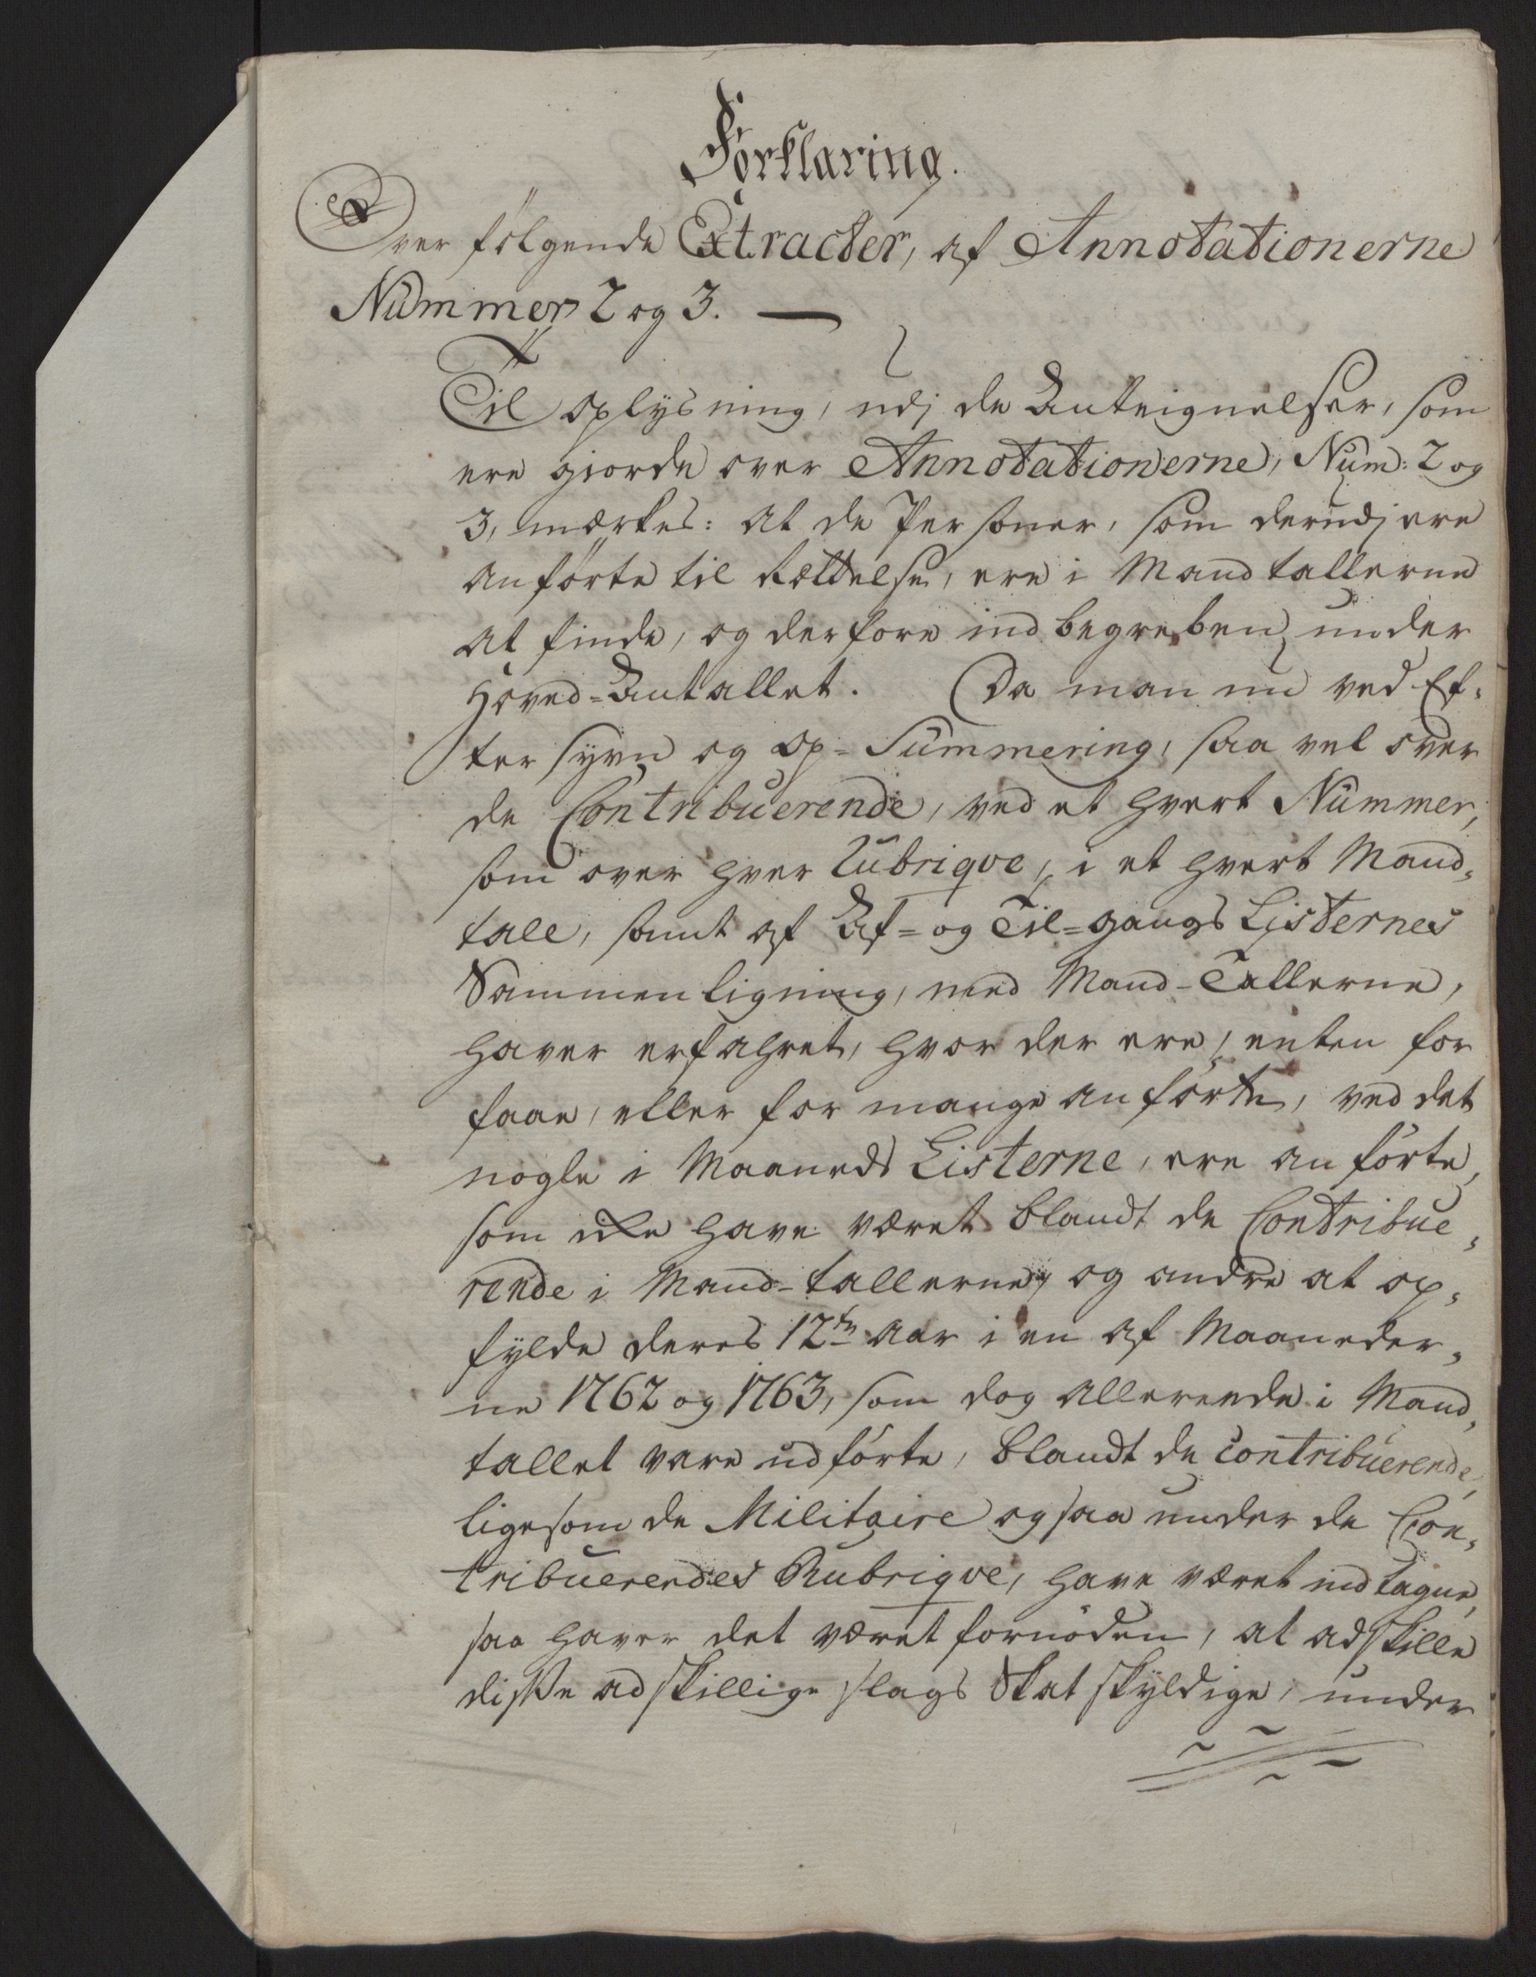 Forklaring.
Over følgende Extracter, af Annotationerne
Nummer 2 og 3. —
Til oplysning, udj de Anteignelser, som
ere giorde over Annotationerne, Num: 2 og
3, mærkes: at de Personer, som derudj ere
anførte til Rættelse, ere i Mandtallerne
at finde, og derfore indbegreben under
Hoved-Antallet. Da man nu ved Ef-
tersyn og op-Summering, saa vel over
de Contribuerende, ved et hvert Nummer,
som over hver Rubriqve, i et hvert Mand-
tall, samt af Af- og Til-gangs Listernes
Sammenligning, med Mand-Tallerne,
haver erfahret, hvor der ere, enten for
faae, eller for mange anførte, ved det
nogle i Maaneds Listerne, ere anførte,
som ikke have været blandt de Contribue-
rende i Mand-tallerne, og andre at op-
fylde deres 12te Aar i en af Maaneder-
ne 1762 og 1763, som dog allerende i Mand-
tallet vare udførte, blandt de contribuerende,
ligesom de Militaire ogsaa under de Con-
tribuerendes Rubriqve, have været indtagne,
saa haver det været fornøden, at adskille
disse adskillige slags Skatskyldige, under